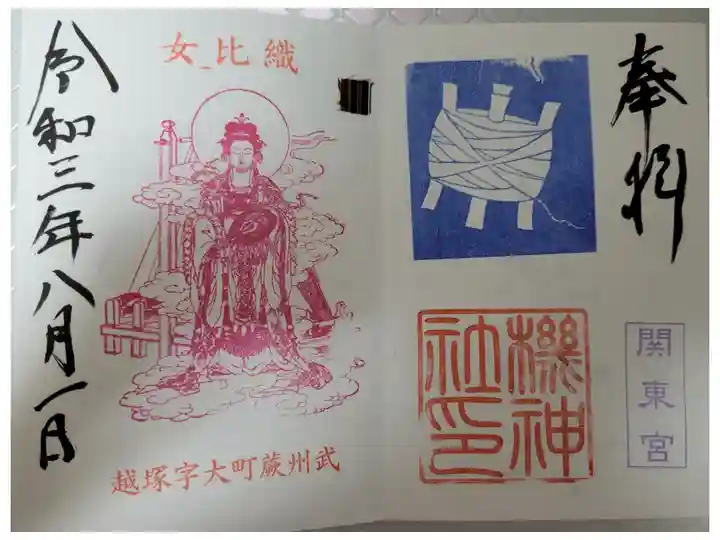 奉拝
関東宮
機神
社印
織比_女
武州蕨町大字塚越
令和三年八月一日